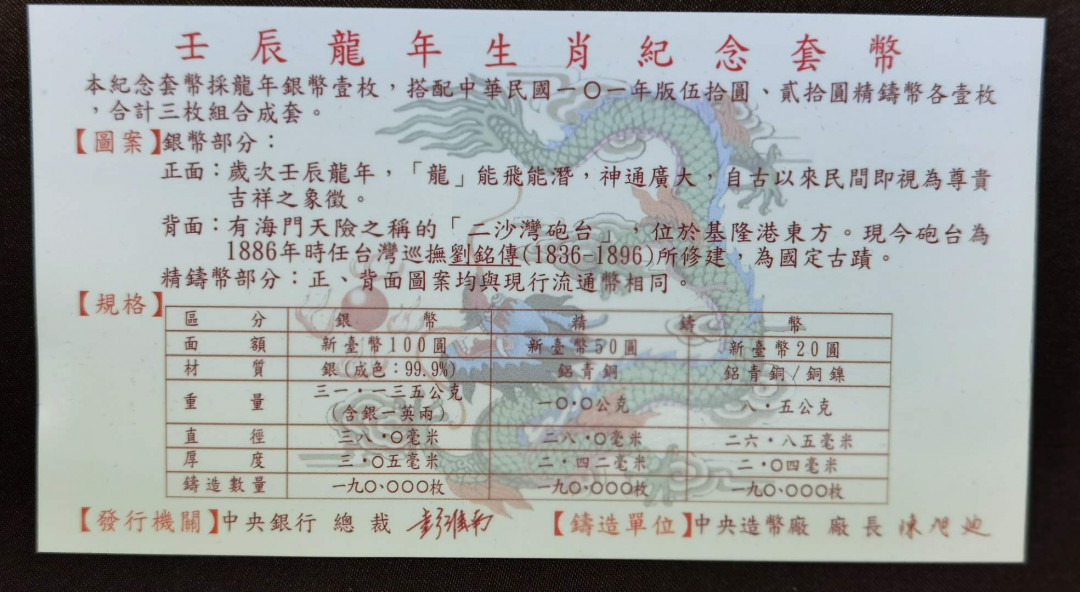 壬辰龍年生肖紀念套幣
本紀念套幣採龍年銀幣壹枚，搭配中華民國一〇一年版伍拾圓、貳拾圓精鑄幣各壹枚
，合計三枚組合成套。
【圖案】銀幣部分：
正面：歲次壬辰龍年，「龍」能飛能潛，神通廣大，自古以來民間即視為尊貴
吉祥之象徵。
背面：有海門天險之稱的「二沙灣砲台」，位於基隆港東方。現今砲台為
1886年時任台灣巡撫劉銘傳(1836-1896)所修建，為國定古蹟。
精鑄幣部分：正、背面圖案均與現行流通幣相同。
【規格】
區分 銀幣 精鑄幣
面額 新臺幣100圓 新臺幣50圓 新臺幣20圓
材質 銀(成色：99.9%) 鋁青銅 鋁青銅/銅鎳
重量 三一·一三五公克 一〇·〇公克 八·五公克
(含銀一英兩)
直徑 三八·〇毫米 二八·〇毫米 二六·八五毫米
厚度 三·〇五毫米 二·四二毫米 二·〇四毫米
鑄造數量 一九〇、〇〇〇枚 一九〇、〇〇〇枚 一九〇、〇〇〇枚
【發行機關】中央銀行 總裁 彭淮南 【鑄造單位】中央造幣廠 廠長